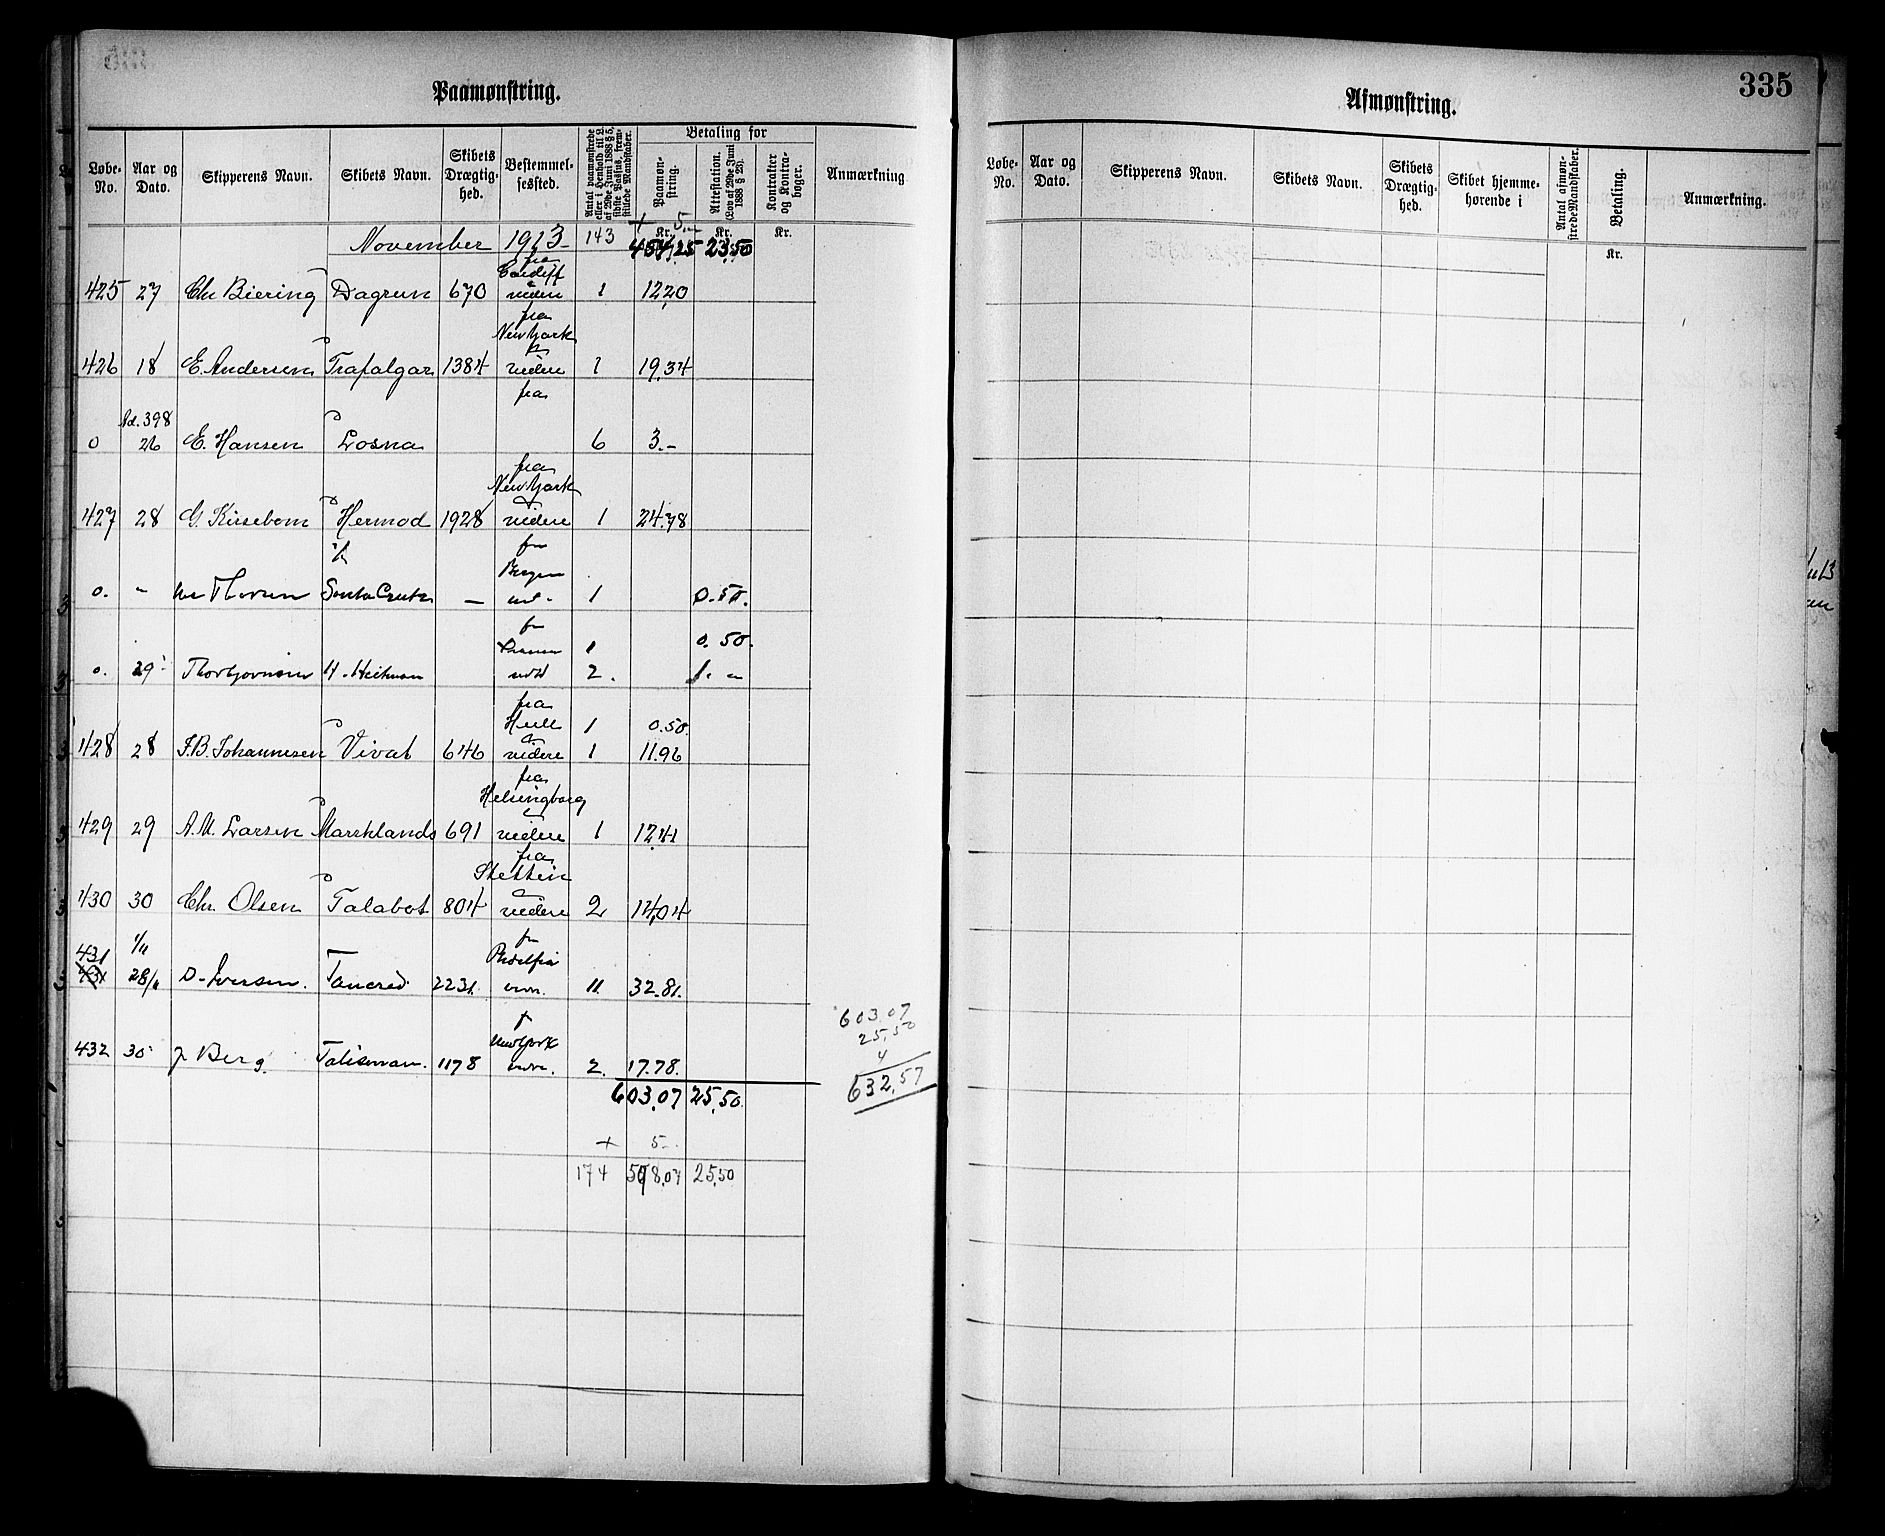 Paamønstring.
Løbe-No. Aar og Dato. Skipperens Navn. Skibets Navn. Skibets Drægtighed. Bestemmelsessted. Antal paamønstrede eller i Henhold til L. af 29de Juni 1888 § 5, sidste Passus, fremstillede Mandskaber. Betaling for Paamønstring. Attestation. (Lov af 29de Juni 1888 § 28). Kontrakter og Kontrabøger. Anmærkning
Kr. Kr. Kr.
+ 5.-
November 1913 143 454,25 23,50
fra
Cardiff
425 27 Chr Biering Dagrun 670 videre 1 12,20
fra
New York
426 18 E. Andersen Trafalgar 1384 videre 1 19,34
fra
No. 398
0 26 E. Hansen Losna 6 3.-
fra
New York
427 28 G. Kirsebom Hermod 1928 videre 1 24.78
fr
Bergen
0. - Thorsen Santa Cruz — 1 0.50.
fr
1 0.50.
0. 29 Thorbjørnsen H. Heitman 2. 1. -
fra
Hull 1 0.50.
428 28 F.B. Johannesen Vivat 646 videre 1 11.96
fra
Helsingborg
429 29 A.M. Larsen Marshlands 691 videre 1 12,41
fra
Stettin
430 30 Chr. Olsen Talabot 804 videre 2 14,04
431 1/11 fr
431 28/11 O. Iversen. Tancred 2231. 11. 32.81.
f
New York
432 30 J Berg. Talisman. 1178 2. 17.78.
603,07 25,50
603,07
25,50
4
632,57
+ 5-
174 598,07 25,50
335
Afmønstring.
Løbe-No. Aar og Dato. Skipperens Navn. Skibets Navn. Skibets Drægtighed. Skibet hjemmehørende i Antal afmønstrede Mandskaber. Betaling. Anmærkning.
Kr.